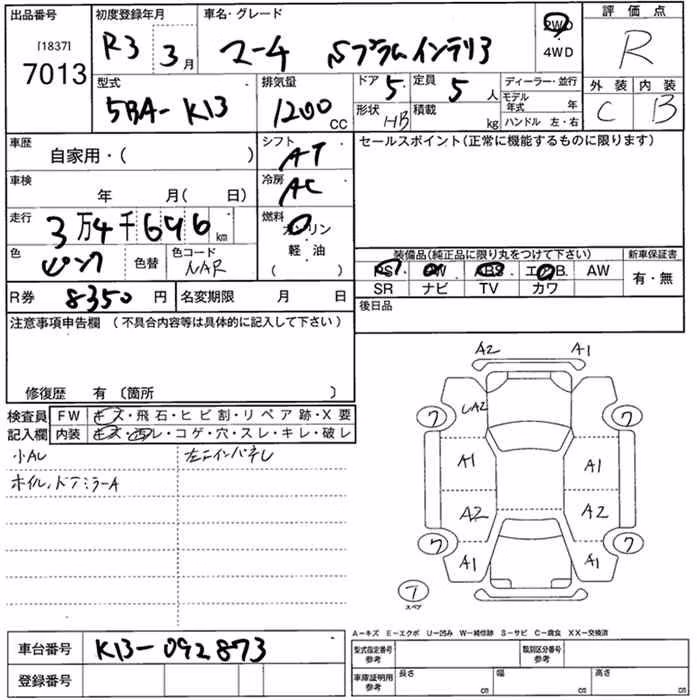 出品番号 初度登録年月 車名・グレード 2WD 評価点
[1837] R3 3月 マーチ Sプラムインテリア 4WD R
7013
型式 排気量 ドア 5 定員 5人 ディーラー・並行 外装 内装
5BA-K13 1200CC 形状 HB 積載 kg モデル年式 年 C B
ハンドル 左・右
車歴 自家用・( ) シフト AT セールスポイント(正常に機能するものに限ります)
車検 年 月( 日) 冷房 AC
走行 3万4千646㎞ 燃料 ガソリン
軽・油
( )
色 ピンク 色替 色コード NAR
装備品(純正品に限り丸をつけて下さい) 新車保証書
PS PW ABS エアB. AW 有・無
SR ナビ TV カワ
R券 8350円 名変期限 月 日 後日品
注意事項申告欄(不具合内容等は具体的に記入して下さい)
修復歴 有(箇所 )
検査員 FW キズ・飛石・ヒビ割・リペア跡・X要
記入欄 内装 キズ・汚レ・コゲ・穴・スレ・キレ・破レ
小AU
ホイル、ドアミラーA
A2 A1
UA2
7 7
A1 A1
A2 A2
7 7
A1 A1
T
スペア
A-キズ E-エクボ U-凹み W-補修跡 S-サビ C-腐食 XX-交換済
車台番号 K13-092873
登録番号
型式指定番号 参考 類別区分番号 参考
車庫証明用 参考 長さ ㎝ 幅 ㎝ 高さ ㎝